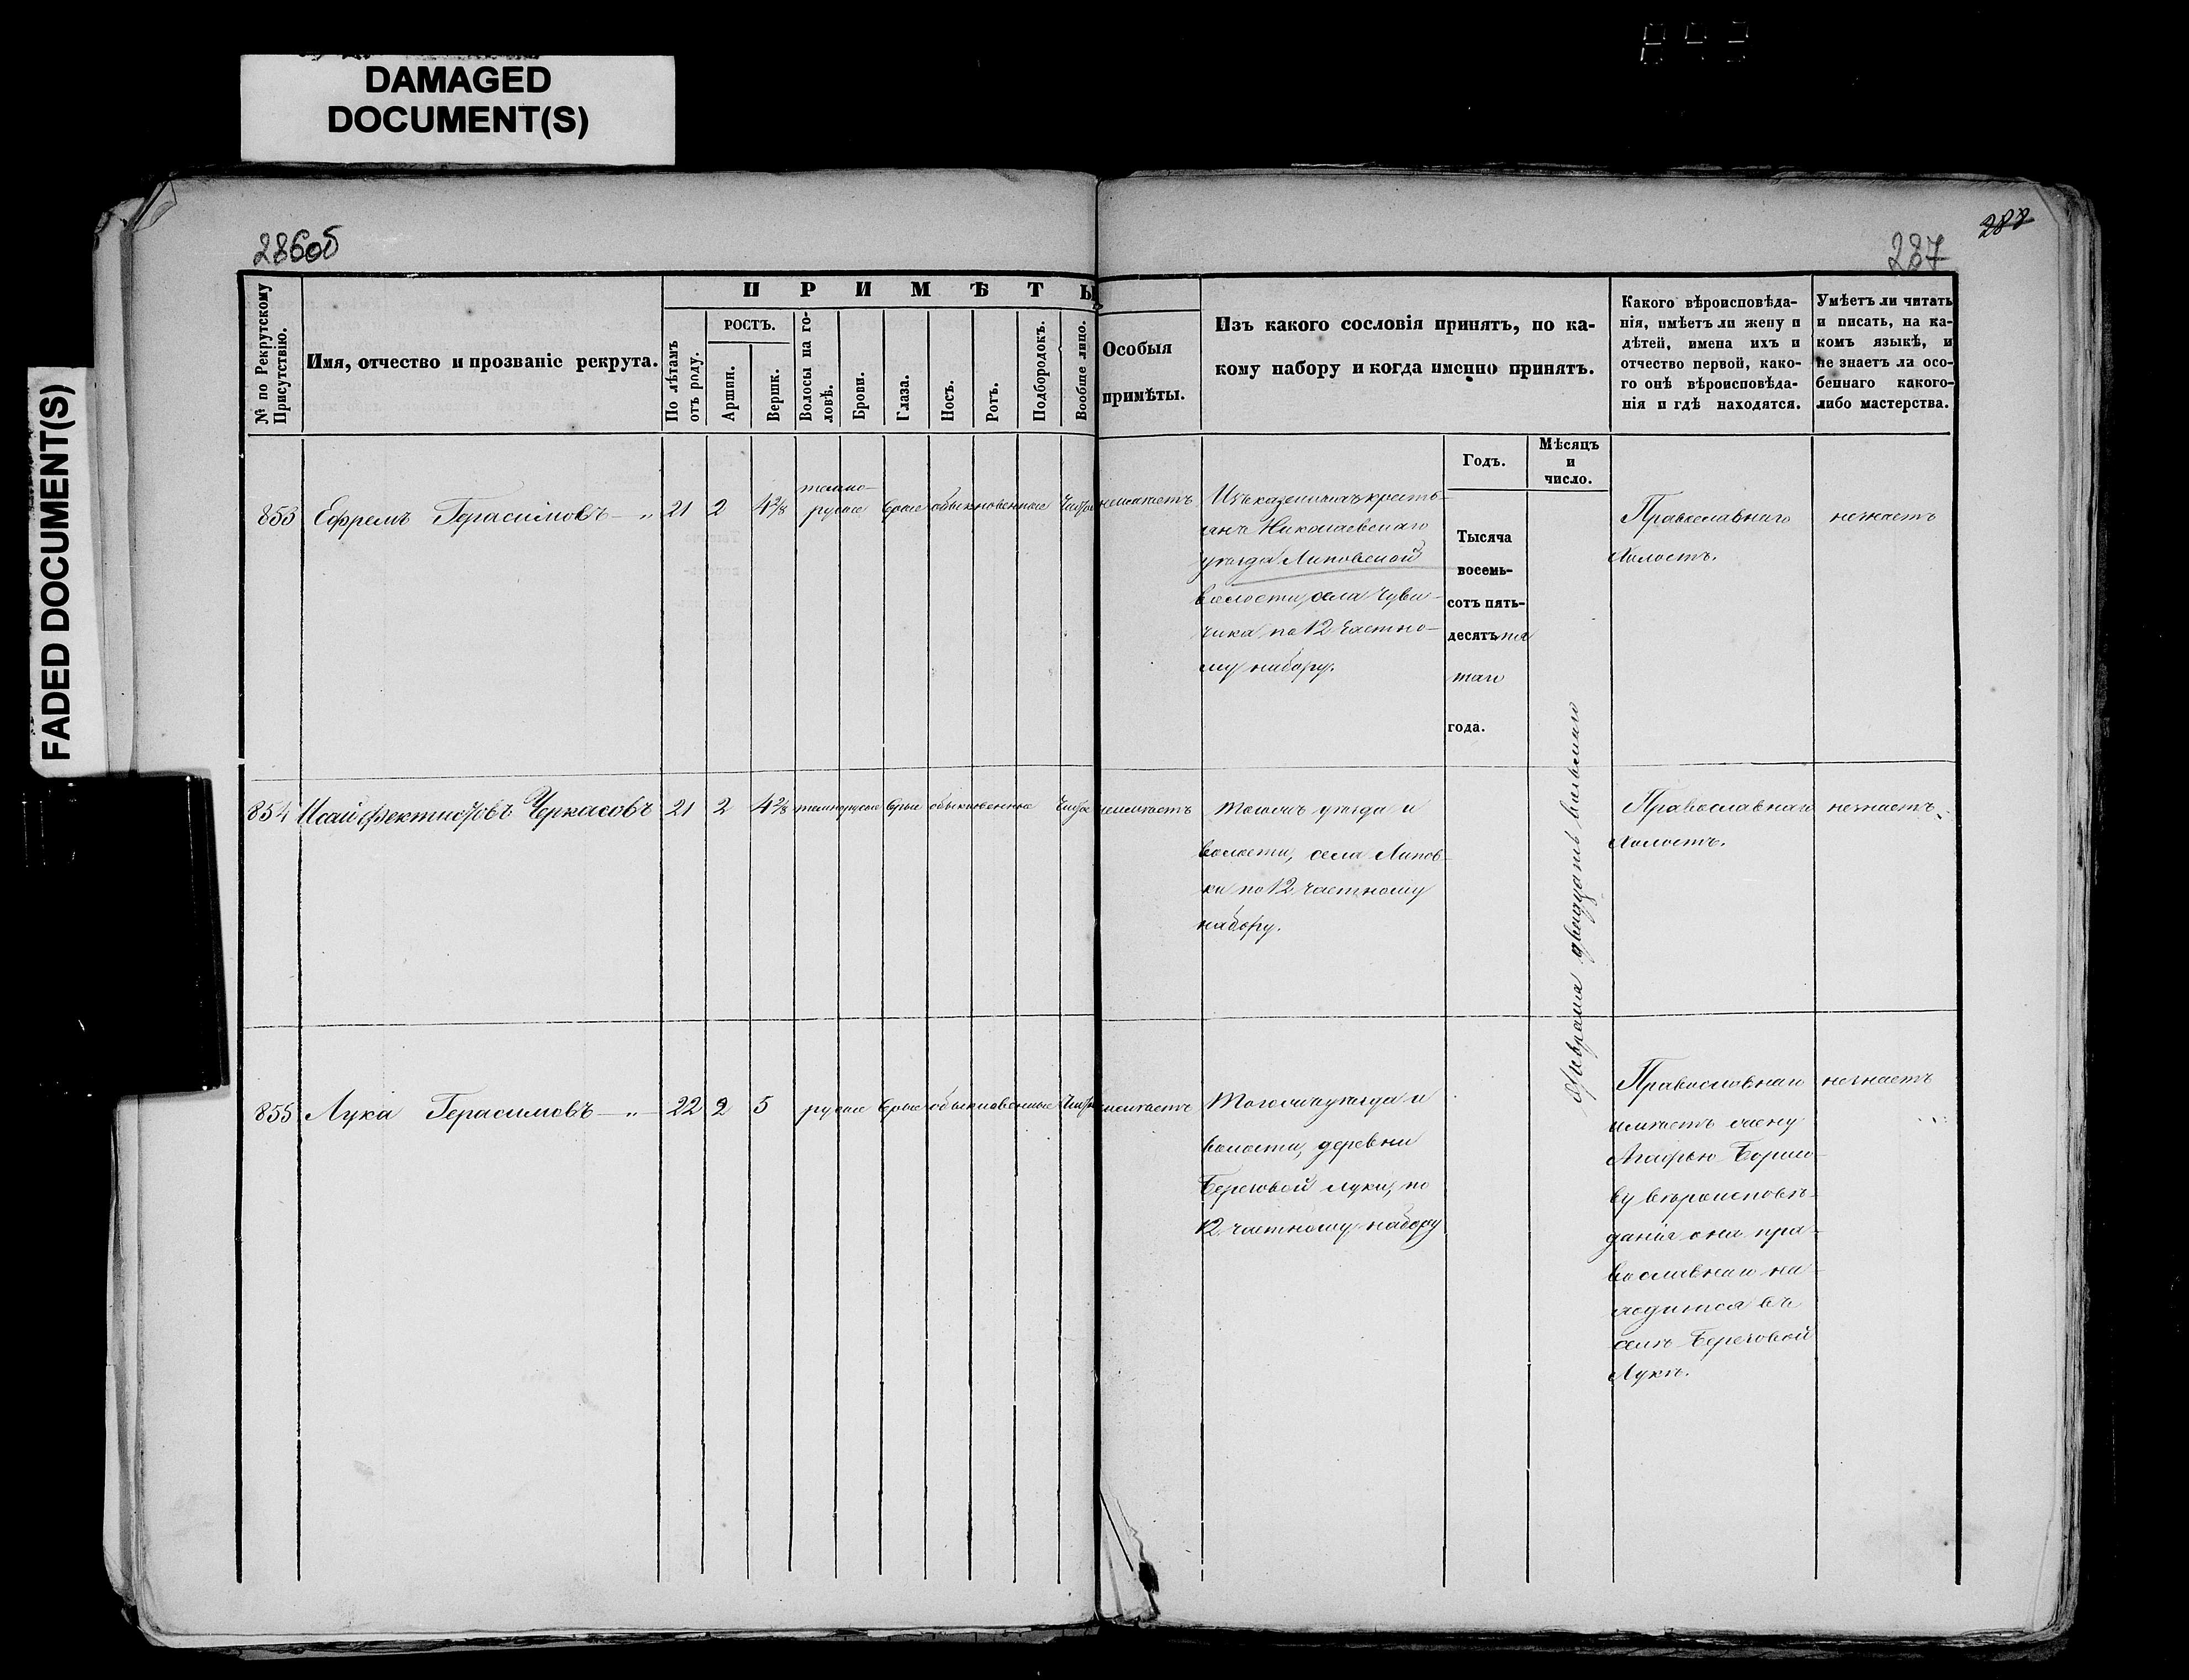 DAMAGED
DOCUMENT(S)
FADED DOCUMENT(S)
286об
287
288
№ по Рекрутскому
Присутствію.
Имя, отчество и прозваніе рекрута.
ПРИМѢТЫ
По лѣтамъ
отъ роду.
РОСТЪ.
Аршин.
Вершк.
Волосы на го-
ловѣ.
Брови.
Глаза.
Носъ.
Ротъ.
Подбородокъ.
Вообще лицо.
Особыя
примѣты.
Изъ какого сословія принятъ, по ка-
кому набору и когда именно принятъ.
Какого вѣроисповѣда-
нія, имѣетъ ли жену и
дѣтей, имена ихъ и
отчество первой, како-
го онѣ вѣроисповѣда-
нія и гдѣ находятся.
Умѣетъ ли читать
и писать, на ка-
комъ языкѣ, и
не знаетъ ли осо-
беннаго какого-
либо мастерства.
Годъ.
Мѣсяцъ
и
число.
853 Ефремъ Герасимовъ — „ 21 2 4 2/8 темно-
русые сѣрые обыкновенные чистое неимѣетъ
Изъ казенныхъ кресть-
янъ Николаевскаго
уѣзда Липовской
волости, села Чуви-
чика, по 12 частно-
му набору.
Тысяча
восемь-
сотъ пять-
десятъ пя
таго
года.
Февраля двадцать восьмаго
Православнаго
Холостъ.
незнаетъ
854 Исай Фектистовъ Черкасовъ 21 2 4 2/8 темнорусые сѣрые обыкновенные чистое неимѣетъ
Тогожъ уѣзда и
волости, села Липов-
ки по 12 частному
набору.
Православнаго
Холостъ.
незнаетъ.
855 Лука Герасимовъ — „ — 22 2 5 русые сѣрые обыкновенные чистое неимѣетъ
Тогожъ уѣзда и
волости, деревни
Береговой Луки, по
12 частному набору
Православнаго
имѣетъ жену
Агафью Борисо-
ву вѣроисповѣ-
данія она пра-
вославнаго на-
ходится въ
селѣ Береговой
Лукѣ.
незнаетъ